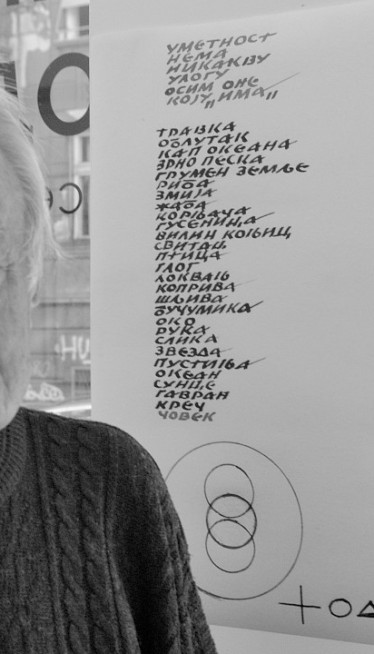 УМЕТНОСТ
НЕМА
НИКАКВУ
УЛОГУ
ОСИМ ОНЕ
КОЈУ „ИМА"
ТРАВКА
ОБЛУТАК
КАП ОКЕАНА
ЗРНО ПЕСКА
ГРУМЕН ЗЕМЉЕ
РИБА
ЗМИЈА
ЖАБА
КОРЊАЧА
ГУСЕНИЦА
ВИЛИН КОЊИЦ
СВИТАЦ
ПТИЦА
ГЛОГ
ЛОКВАЊ
КОПРИВА
ШЉИВА
БУЧУМИКА
ОКО
РУКА
СЛИКА
ЗВЕЗДА
ПУСТИЊА
ОКЕАН
СУНЦЕ
ГАВРАН
КРЕЧ
ЧОВЕК